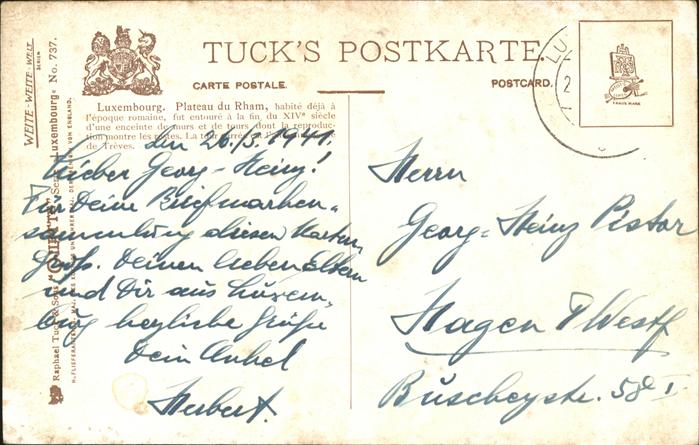 WEITE-WEITE-WELT
SERIEN
TUCK'S POSTKARTE.
CARTE POSTALE.
POSTCARD.
Luxembourg. Plateau du Rham, habité déjà à
l'époque romaine, fut entouré à la fin du XIVe siècle
d'une enceinte de murs et de tours dont la reproduc-
tion montre les restes. La tour
de Trèves.
Raphael Tuck & Sons' "OILETTE" Serie "Luxembourg" No. 737.
TRADE MARK
den 26./3. 1941.
Lieber Georg-Heinz!
Für Deine Briefmarken-
sammlung diesen Karten
Gruß. Deinen lieben Eltern
und Dir aus Luxem-
burg herzliche Grüße
Dein Onkel
Herbert.
Herrn
Georg-Heinz Pistor
Hagen i/Westf
Buscheystr. 58 I.